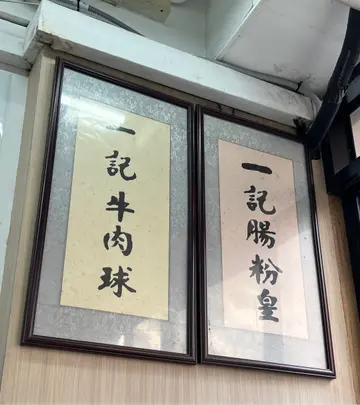 一記腸粉皇
一記牛肉球